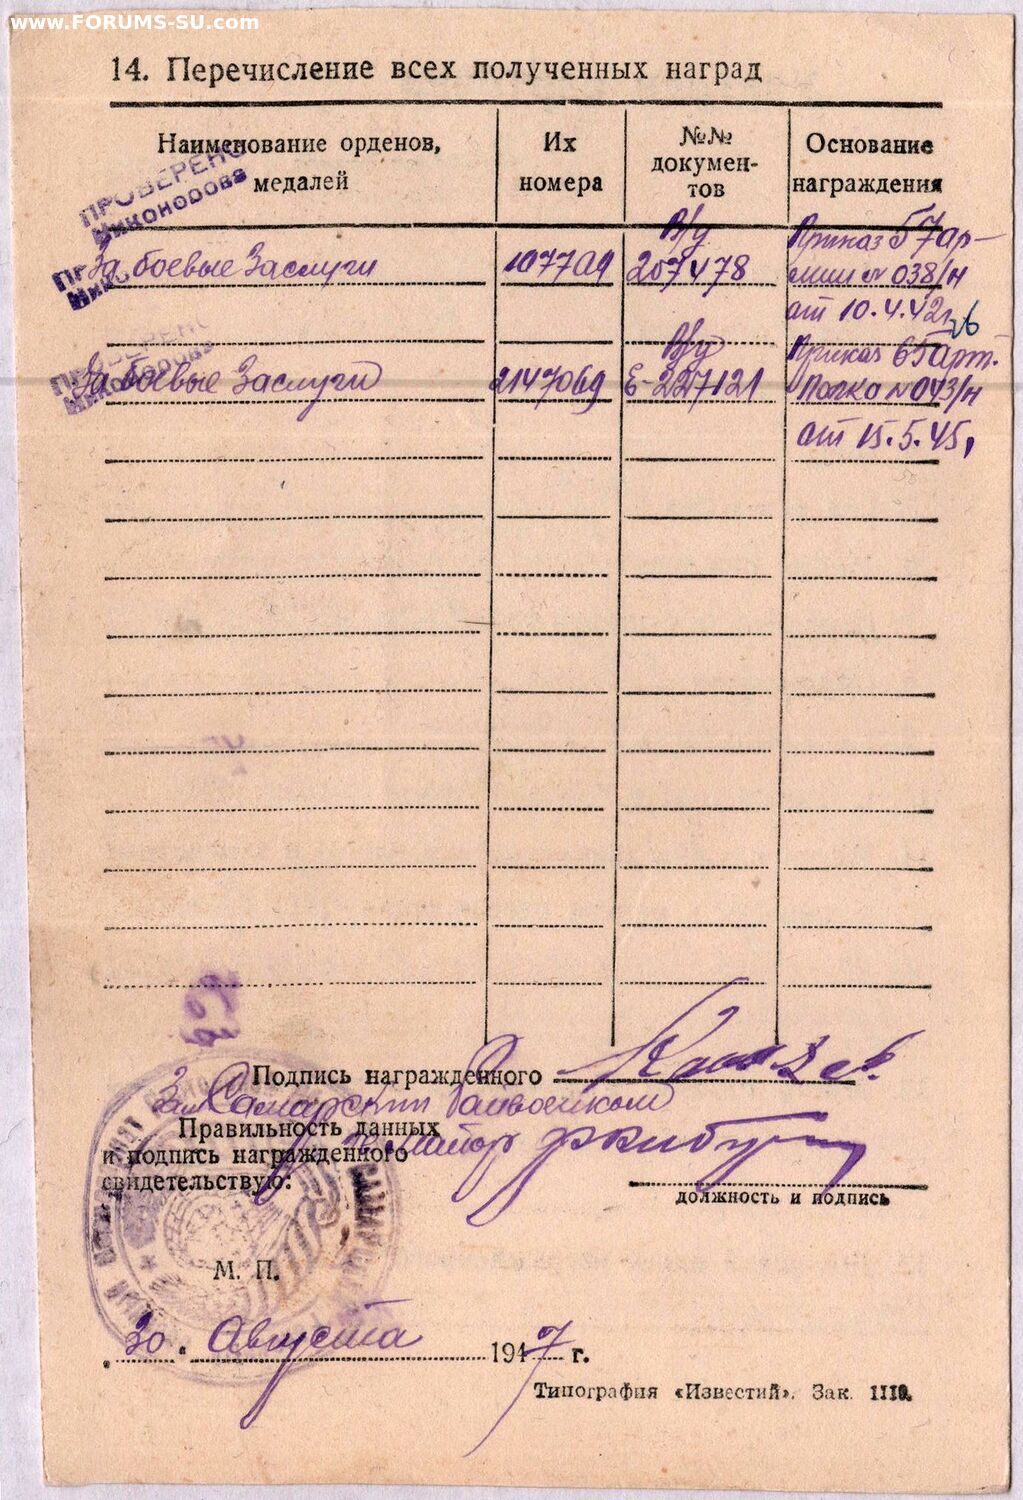 www.FORUMS-SU.com
14. Перечисление всех полученных наград
Наименование орденов, медалей
Их номера
№№ документов
Основание награждения
ПРОВЕРЕНО
Никонорова
За боевые Заслуги
107709
В/у 207478
Приказ 57 ар-
мии № 038/н
от 10.4.42г.
ПРОВЕРЕНО
Никонорова
За боевые Заслуги
2147069
В/у Е-227121
Приказ 65 арт.
Полка № 043/н
от 15.5.45г
Подпись награжденного
Зам Самарский Райвоенком
Правильность данных
и подпись награжденного
свидетельствую:
майор
должность и подпись
М. П.
„30" Августа 1947 г.
Типография «Известий». Зак. 1110.